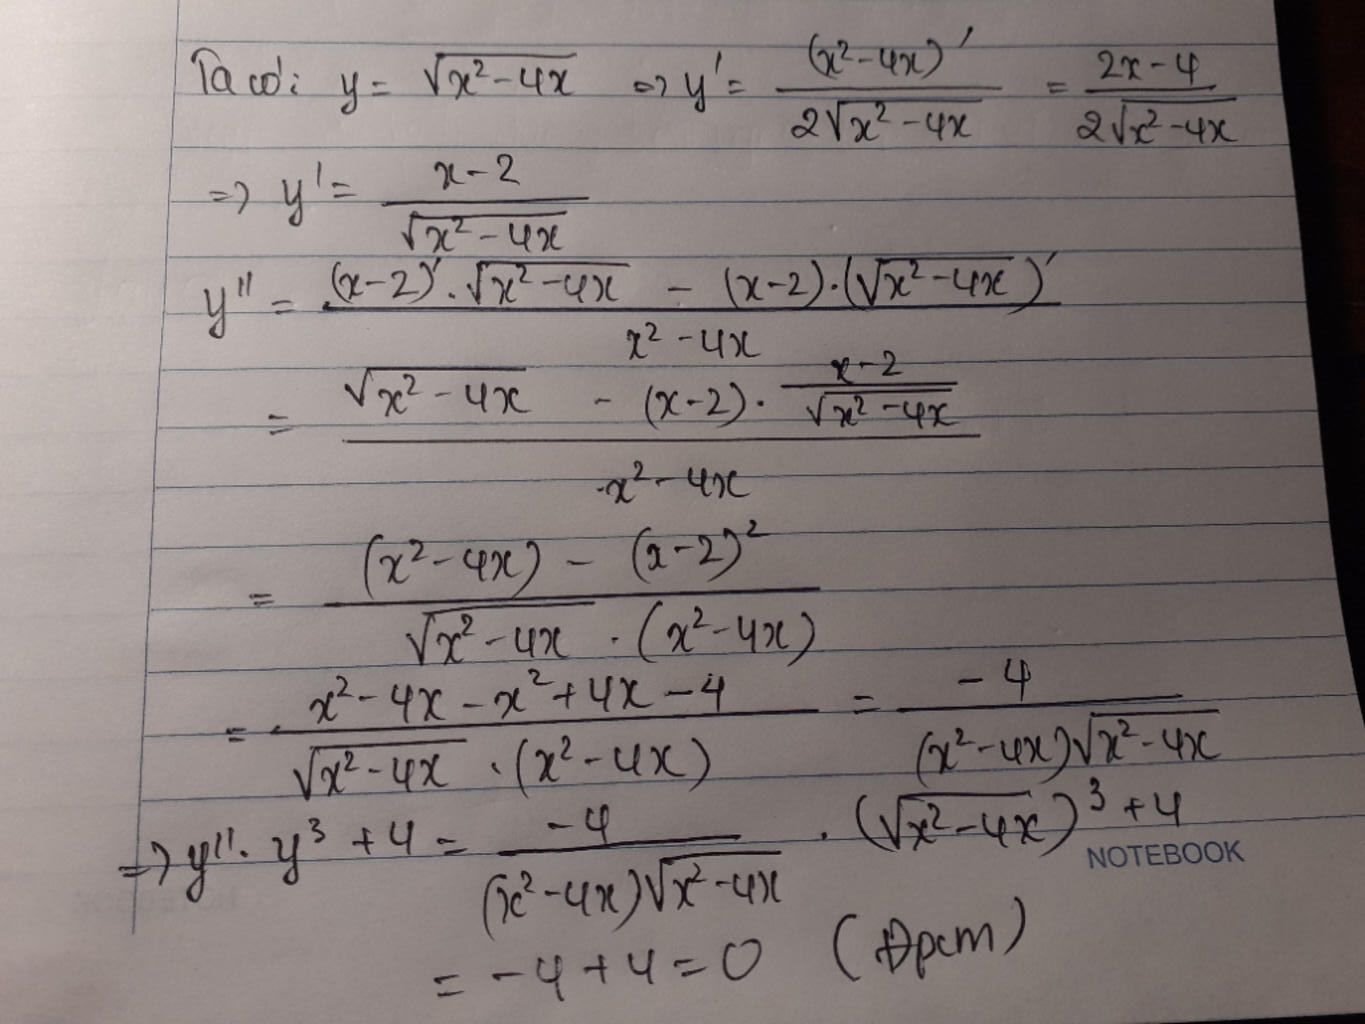 Ta có: y = √(x² - 4x) => y' = (x² - 4x)' / 2√(x² - 4x) = (2x - 4) / 2√(x² - 4x)
=> y' = (x - 2) / √(x² - 4x)
y'' = ((x - 2)' . √(x² - 4x) - (x - 2) . (√(x² - 4x))') / (x² - 4x)
= (√(x² - 4x) - (x - 2) . (x - 2) / √(x² - 4x)) / (x² - 4x)
= ((x² - 4x) - (x - 2)²) / (√(x² - 4x) . (x² - 4x))
= (x² - 4x - x² + 4x - 4) / (√(x² - 4x) . (x² - 4x)) = -4 / ((x² - 4x)√(x² - 4x))
=> y'' . y³ + 4 = -4 / ((x² - 4x)√(x² - 4x)) . (√(x² - 4x))³ + 4
NOTEBOOK
= -4 + 4 = 0 (Đpcm)